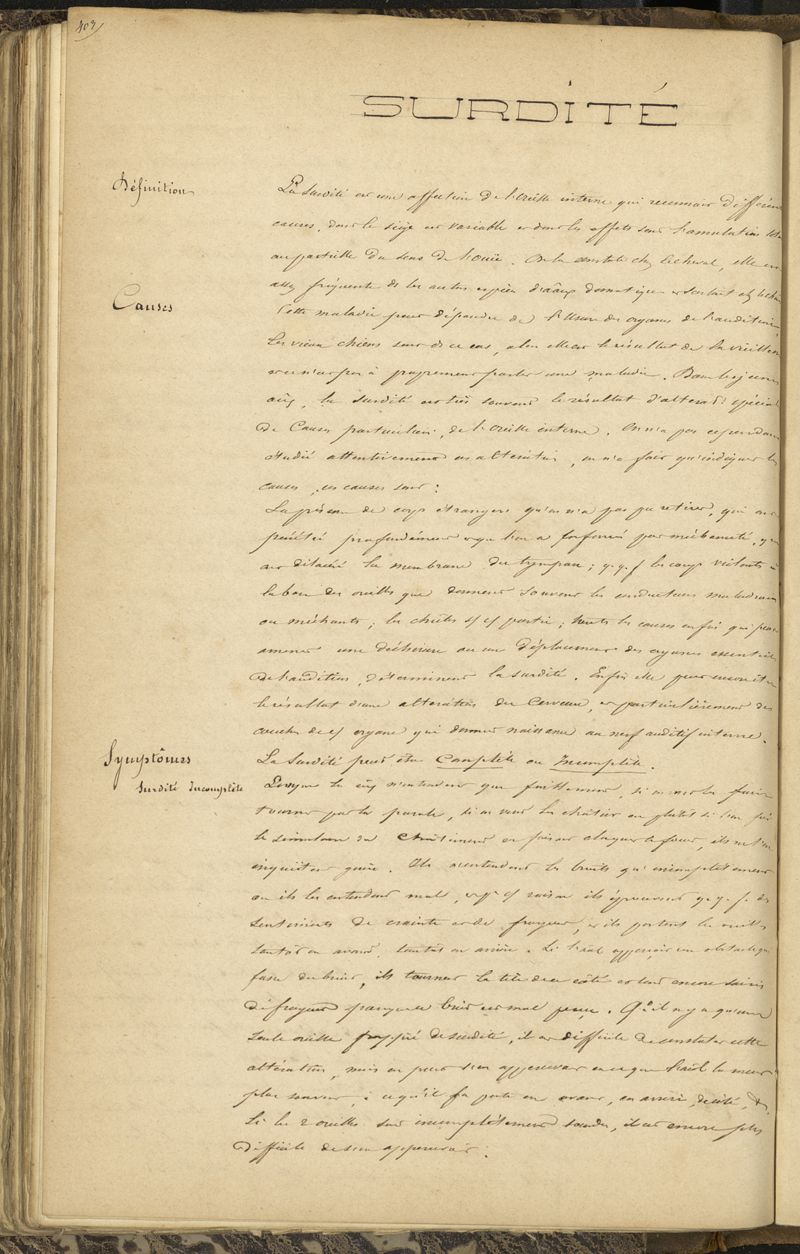 409
SURDITÉ
Définition
La Surdité est une affection de l'oreille interne qui reconnait différentes
causes, dont le siège est variable et dont les effets sont l'annulation
ou partielle du sens de l'ouïe. On la constate chez le cheval, elle est
assez fréquente chez les autres espèces d'animaux domestiques et surtout chez le chien
Causes
Cette maladie peut dépendre de l'Usure des organes de l'audition,
les vieux chiens sont dans ce cas, alors elle est le résultat de la vieillesse
et ce n'est pas à proprement parler une maladie. Dans les jeunes
la surdité est très souvent le résultat d'altérations spéciales
de Causes particulières, de l'oreille interne. On n'a pas cependant
étudié attentivement ces altérations, on n'a fait qu'indiquer les
causes, ces causes sont :
La présence de corps étrangers qu'on n'a pas pu retirer, qui ont
pénétré profondément et que l'on a enfoncés par méchanceté, qui
ont détaché la membrane du tympan ; q.q.f. les coups violents à
la base des oreilles que donnent souvent les conducteurs maladroits
ou méchants ; les chûtes partie ; toutes les causes enfin qui peuvent
amener une déchirure ou un déplacement des organes essentiels
de l'audition, déterminent la surdité. Enfin elle peut encore être
le résultat d'une altération du Cerveau, et particulièrement des
couches de organe qui donnent naissance au nerf auditif interne.
Symptômes
La Surdité peut être Complète ou Incomplète.
Surdité Incomplète
Lorsque les n'entendent que faiblement, si on veut les faire
tourner par la parole, si on veut les châtier ou plutôt si l'on fait
le simulacre du Châtiment en faisant claquer le fouet, ils ne s'en
inquiètent guère. Ils n'entendent les bruits qu'incomplètement
ou ils les entendent mal, et raison ils éprouvent q.q.f. des
sentiments de crainte et de frayeur, et ils portent les oreilles
tantôt en avant, tantôt en arrière. Si l'animal apperçoit un obstacle qui
fasse du bruit, ils tournent la tête de ce côté et sont encore saisis
de frayeur parce que le bruit est mal perçu. Qd il n'y a qu'une
seule oreille frappée de surdité, il est difficile de constater cette
altération, mais on peut s'en appercevoir en ce que l'animal la meut
plus souvent, à ce qu'il la porte en avant, en arrière, de côté, &.
Si les 2 oreilles sont incomplètement sourdes, il est encore plus
difficile de s'en appercevoir.